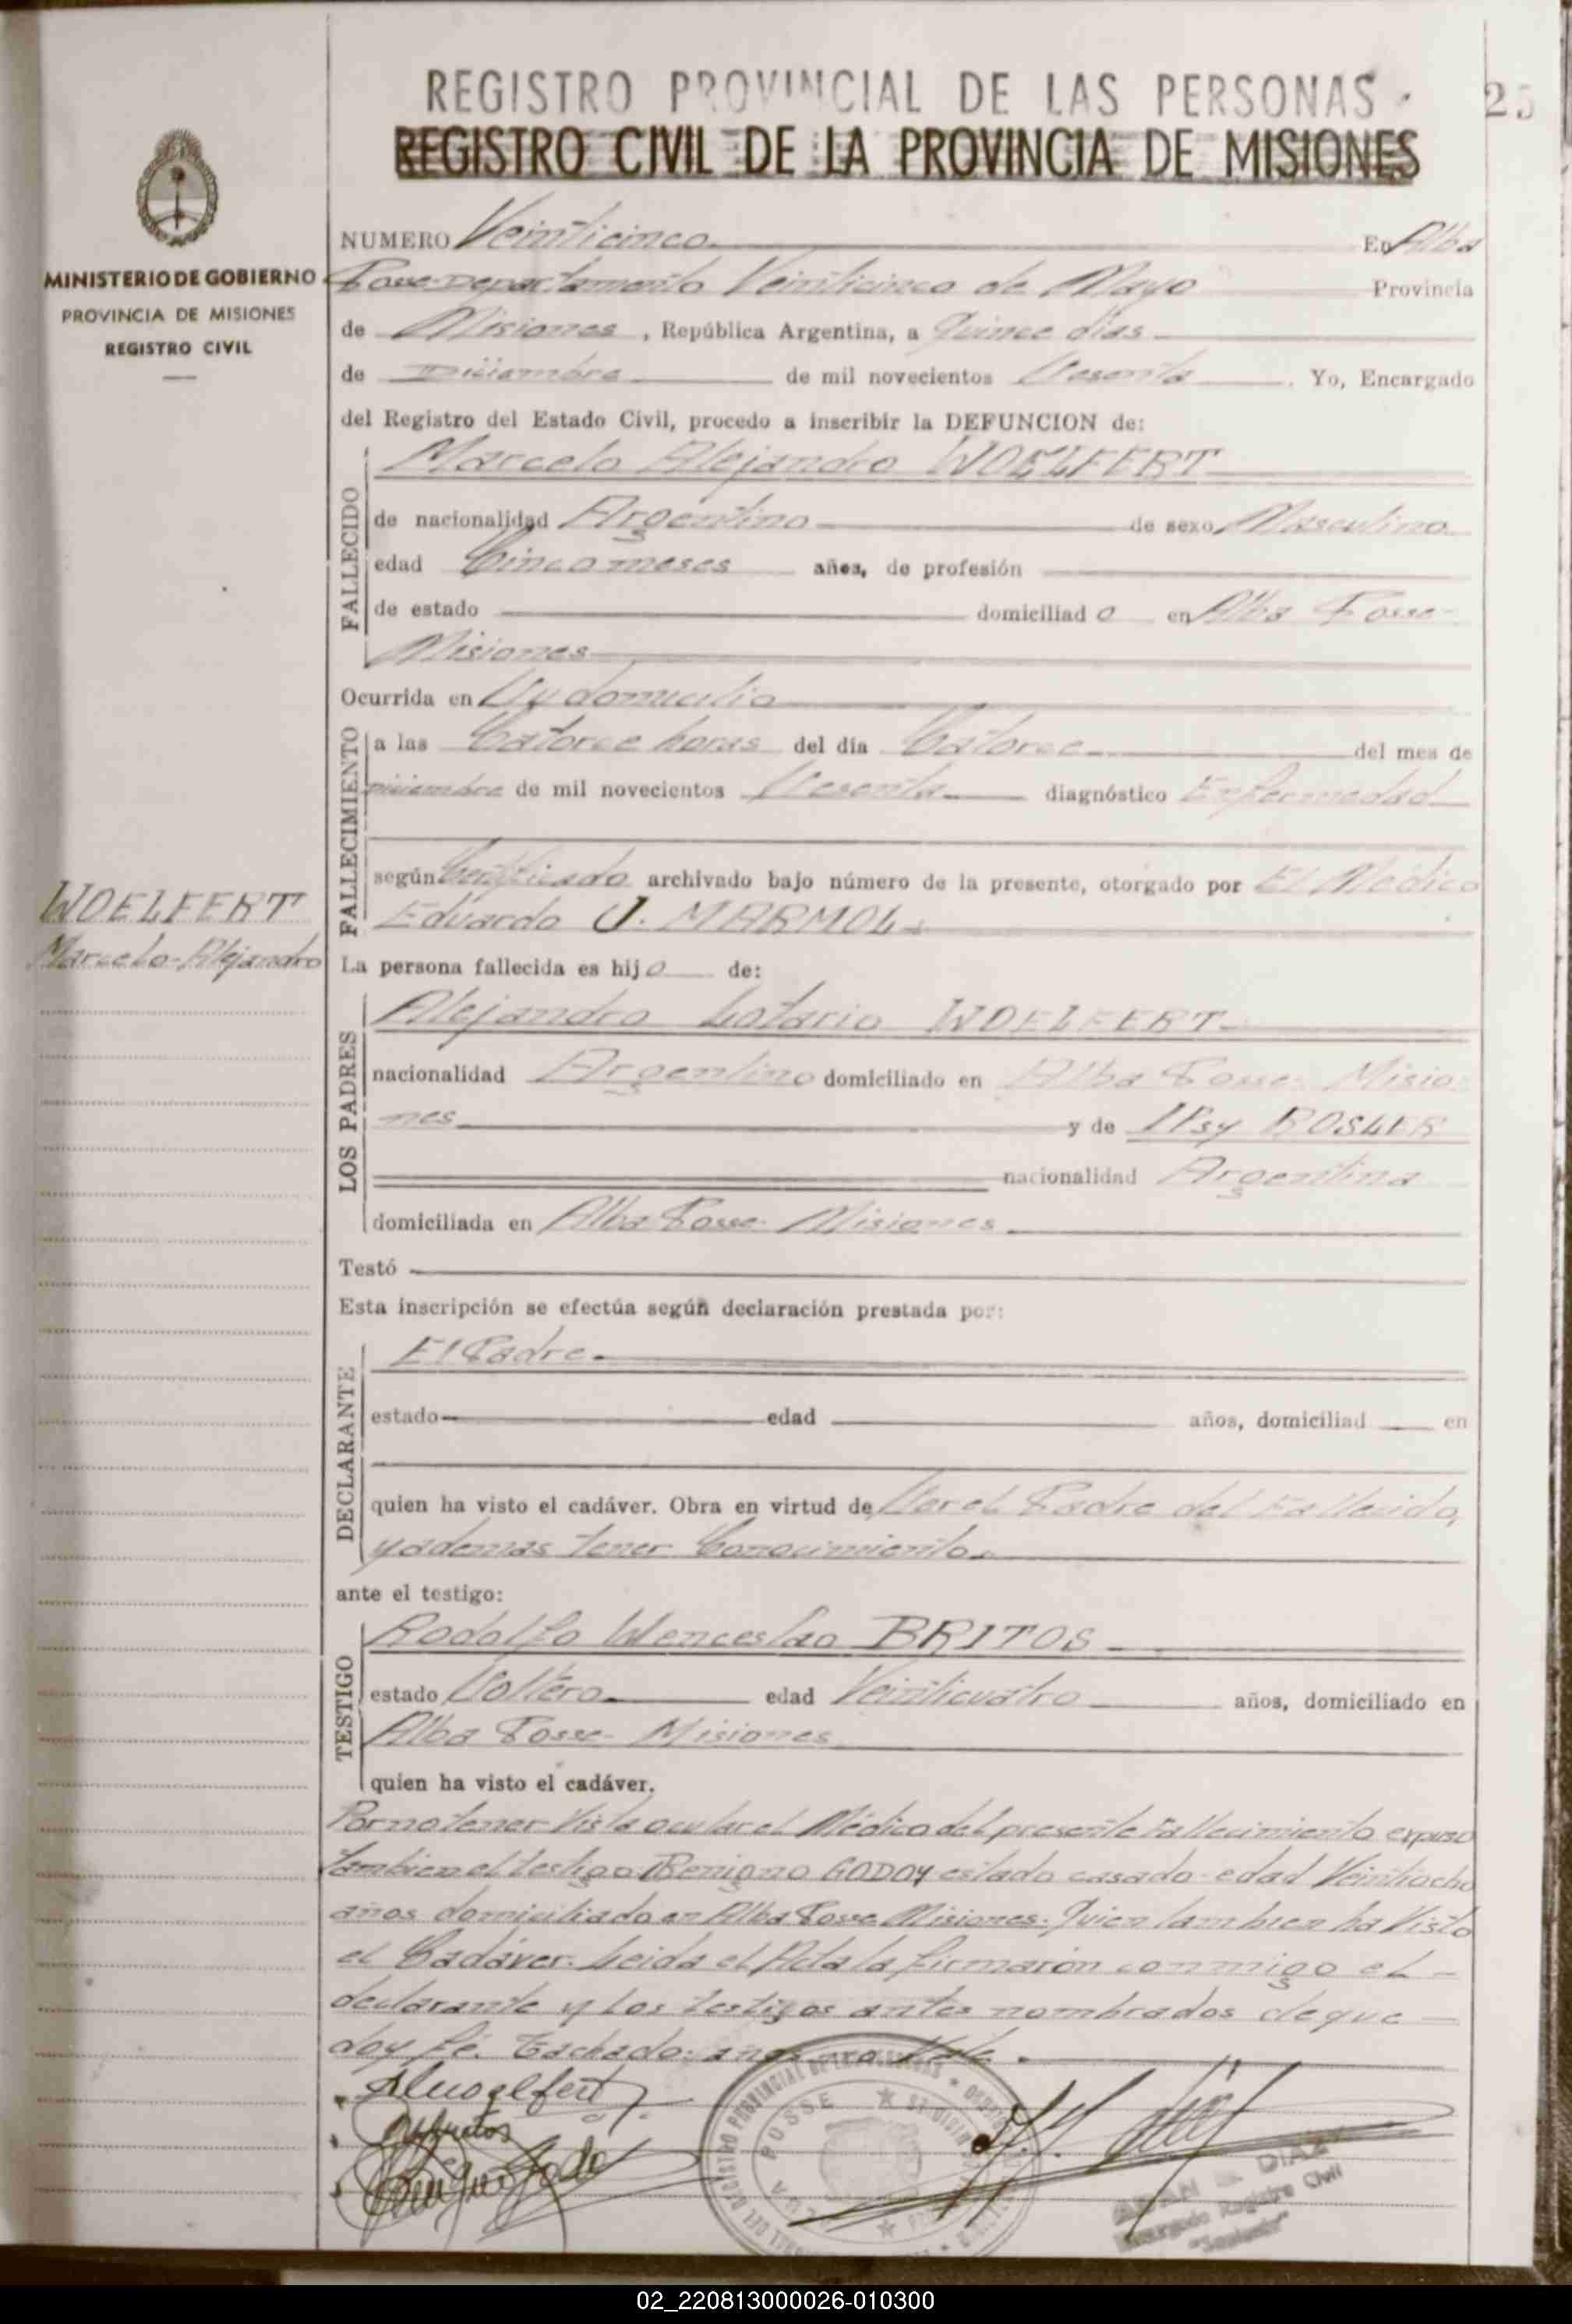 REGISTRO PROVINCIAL DE LAS PERSONAS
25
REGISTRO CIVIL DE LA PROVINCIA DE MISIONES
MINISTERIO DE GOBIERNO
PROVINCIA DE MISIONES
REGISTRO CIVIL
NUMERO Veinticinco En Alba
Posse Departamento Veinticinco de Mayo Provincia
de Misiones, República Argentina, a Quince dias
de Diciembre de mil novecientos Sesenta. Yo, Encargado
del Registro del Estado Civil, procedo a inscribir la DEFUNCION de:
FALLECIDO
Marcelo Alejandro WOELFERT
de nacionalidad Argentino de sexo Masculino
edad Cinco meses años, de profesión
de estado domiciliado en Alba Posse-
Misiones
Ocurrida en Su domicilio
FALLECIMIENTO
a las Catorce horas del día Catorce del mes de
Diciembre de mil novecientos Sesenta diagnóstico Enfermedad
según Certificado archivado bajo número de la presente, otorgado por El Médico
Eduardo J. MARMOL.
WOELFERT
Marcelo-Alejandro
La persona fallecida es hijo de:
LOS PADRES
Alejandro Lotario WOELFERT
nacionalidad Argentino domiciliado en Alba Posse- Misio
nes y de Ilsy ROSLER
nacionalidad Argentina
domiciliada en Alba Posse- Misiones
Testó
Esta inscripción se efectúa según declaración prestada por:
DECLARANTE
El Padre.
estado edad años, domiciliad en
quien ha visto el cadáver. Obra en virtud de Ser el Padre del Fallecido,
y ademas tener Conocimiento.
ante el testigo:
TESTIGO
Rodolfo Wenceslao BRITOS
estado Soltero edad Veinticuatro años, domiciliado en
Alba Posse- Misiones
quien ha visto el cadáver.
Por no tener Vista ocular el Médico del presente Fallecimiento expuso
tambien el testigo Benigno GODOY estado casado- edad Veintiocho
años domiciliado en Alba Posse Misiones. Quien tambien ha Visto
el Cadáver. Leida el Acta la firmarón conmigo el
declarante y los testigos antes nombrados de que
doy fé. Tachado: años no Vale.
ALBA POSSE
DIAZ
Encargado Registro Civil
02_220813000026-010300